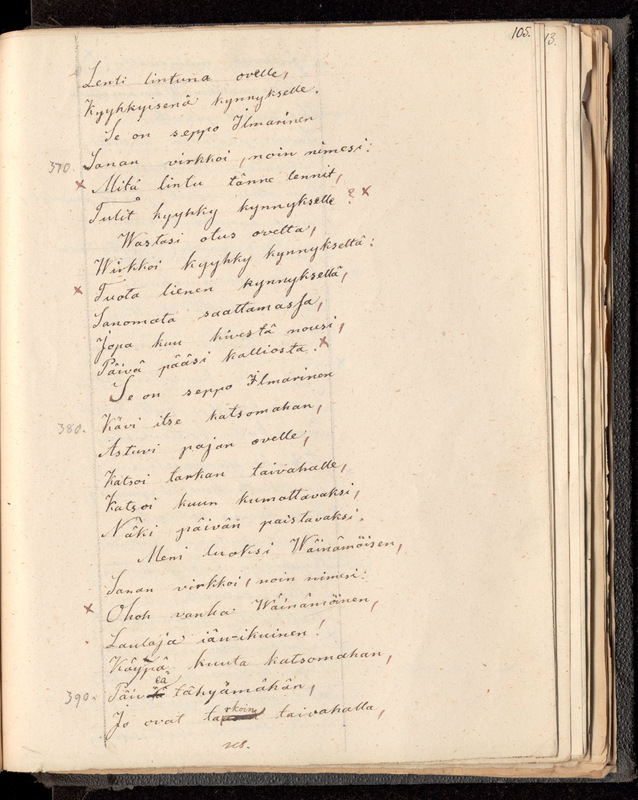 105.
13.
Lenti lintuna ovelle,
Kyyhkyisenä kynnykselle.
Se on seppo Ilmarinen
370. Sanan virkkoi, noin nimesi:
× Mitä lintu tänne lennit,
Tulit kyyhky kynnykselle? ×
Wastasi otus ovelta,
Wirkkoi kyyhky kynnykseltä:
× Tuota lienen kynnyksellä,
Sanomata saattamassa,
Jopa kuu kivestä nousi,
Päivä pääsi kalliosta. ×
Se on seppo Ilmarinen
380. Kävi itse katsomahan,
Astuvi pajan ovelle,
Katsoi tarkan taivahalle,
Katsoi kuun kumottavaksi,
Näki päivän paistavaksi.
Meni luoksi Wäinämöisen,
Sanan virkkoi, noin nimesi:
× Ohoh vanha Wäinämöinen,
Laulaja iän-ikuinen!
Käypä kuuta katsomahan,
390. Päiveä tähyämähän,
Jo ovat tarkoin taivahalla,